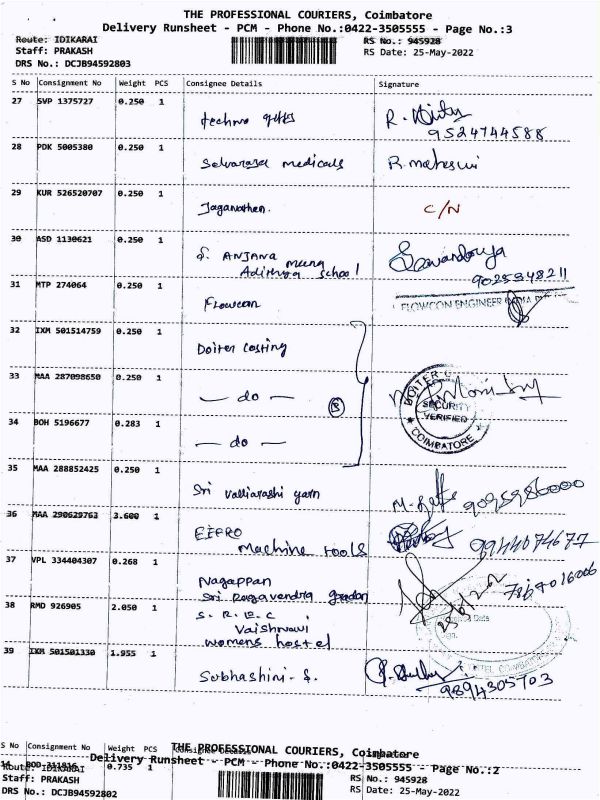 THE PROFESSIONAL COURIERS, Coimbatore
Delivery Runsheet - PCM - Phone No.:0422-3505555 - Page No.:3
Route: IDIKARAI
RS No.: 945928
Staff: PRAKASH
RS Date: 25-May-2022
DRS No.: DCJB94592803
S No Consignment No Weight PCS Consignee Details Signature
27 SVP 1375727 0.250 1
techno
9524744588
28 PDK 5005380 0.250 1
Selvarasa medicals R. maheswi
29 KUR 526520707 0.250 1
Jaganathan. C/N
30 ASD 1130621 0.250 1
S. ANJANA meena
Adithya School
9025948211
31 MTP 274064 0.250 1
Flowcon FLOWCON ENGINEER
32 IXM 501514759 0.250 1
Doiter casting
33 MAA 287098650 0.250 1
— do — 3
DOITER
SECURITY
VERIFIED
COIMBATORE
34 BOH 5196677 0.283 1
— do —
35 MAA 288852425 0.250 1
Sri valliarashi yarn
36 MAA 290629763 3.600 1
machine tools 9944074677
37 VPL 334404307 0.268 1
Nagappan
Sri Ragavendra
38 RMD 926905 2.050 1
Vaishnavi
womens hostel
39 IXM 501501330 1.955 1
Subhashini. S. 9894305703
S No Consignment No Weight PCS Consignee Details
THE PROFESSIONAL COURIERS, Coimbatore
14 BOD 0.735 1
Delivery Runsheet - PCM - Phone No.:0422-3505555 - Page No.:2
Route: IDIKARAI
RS No.: 945928
Staff: PRAKASH
RS Date: 25-May-2022
DRS No.: DCJB94592802